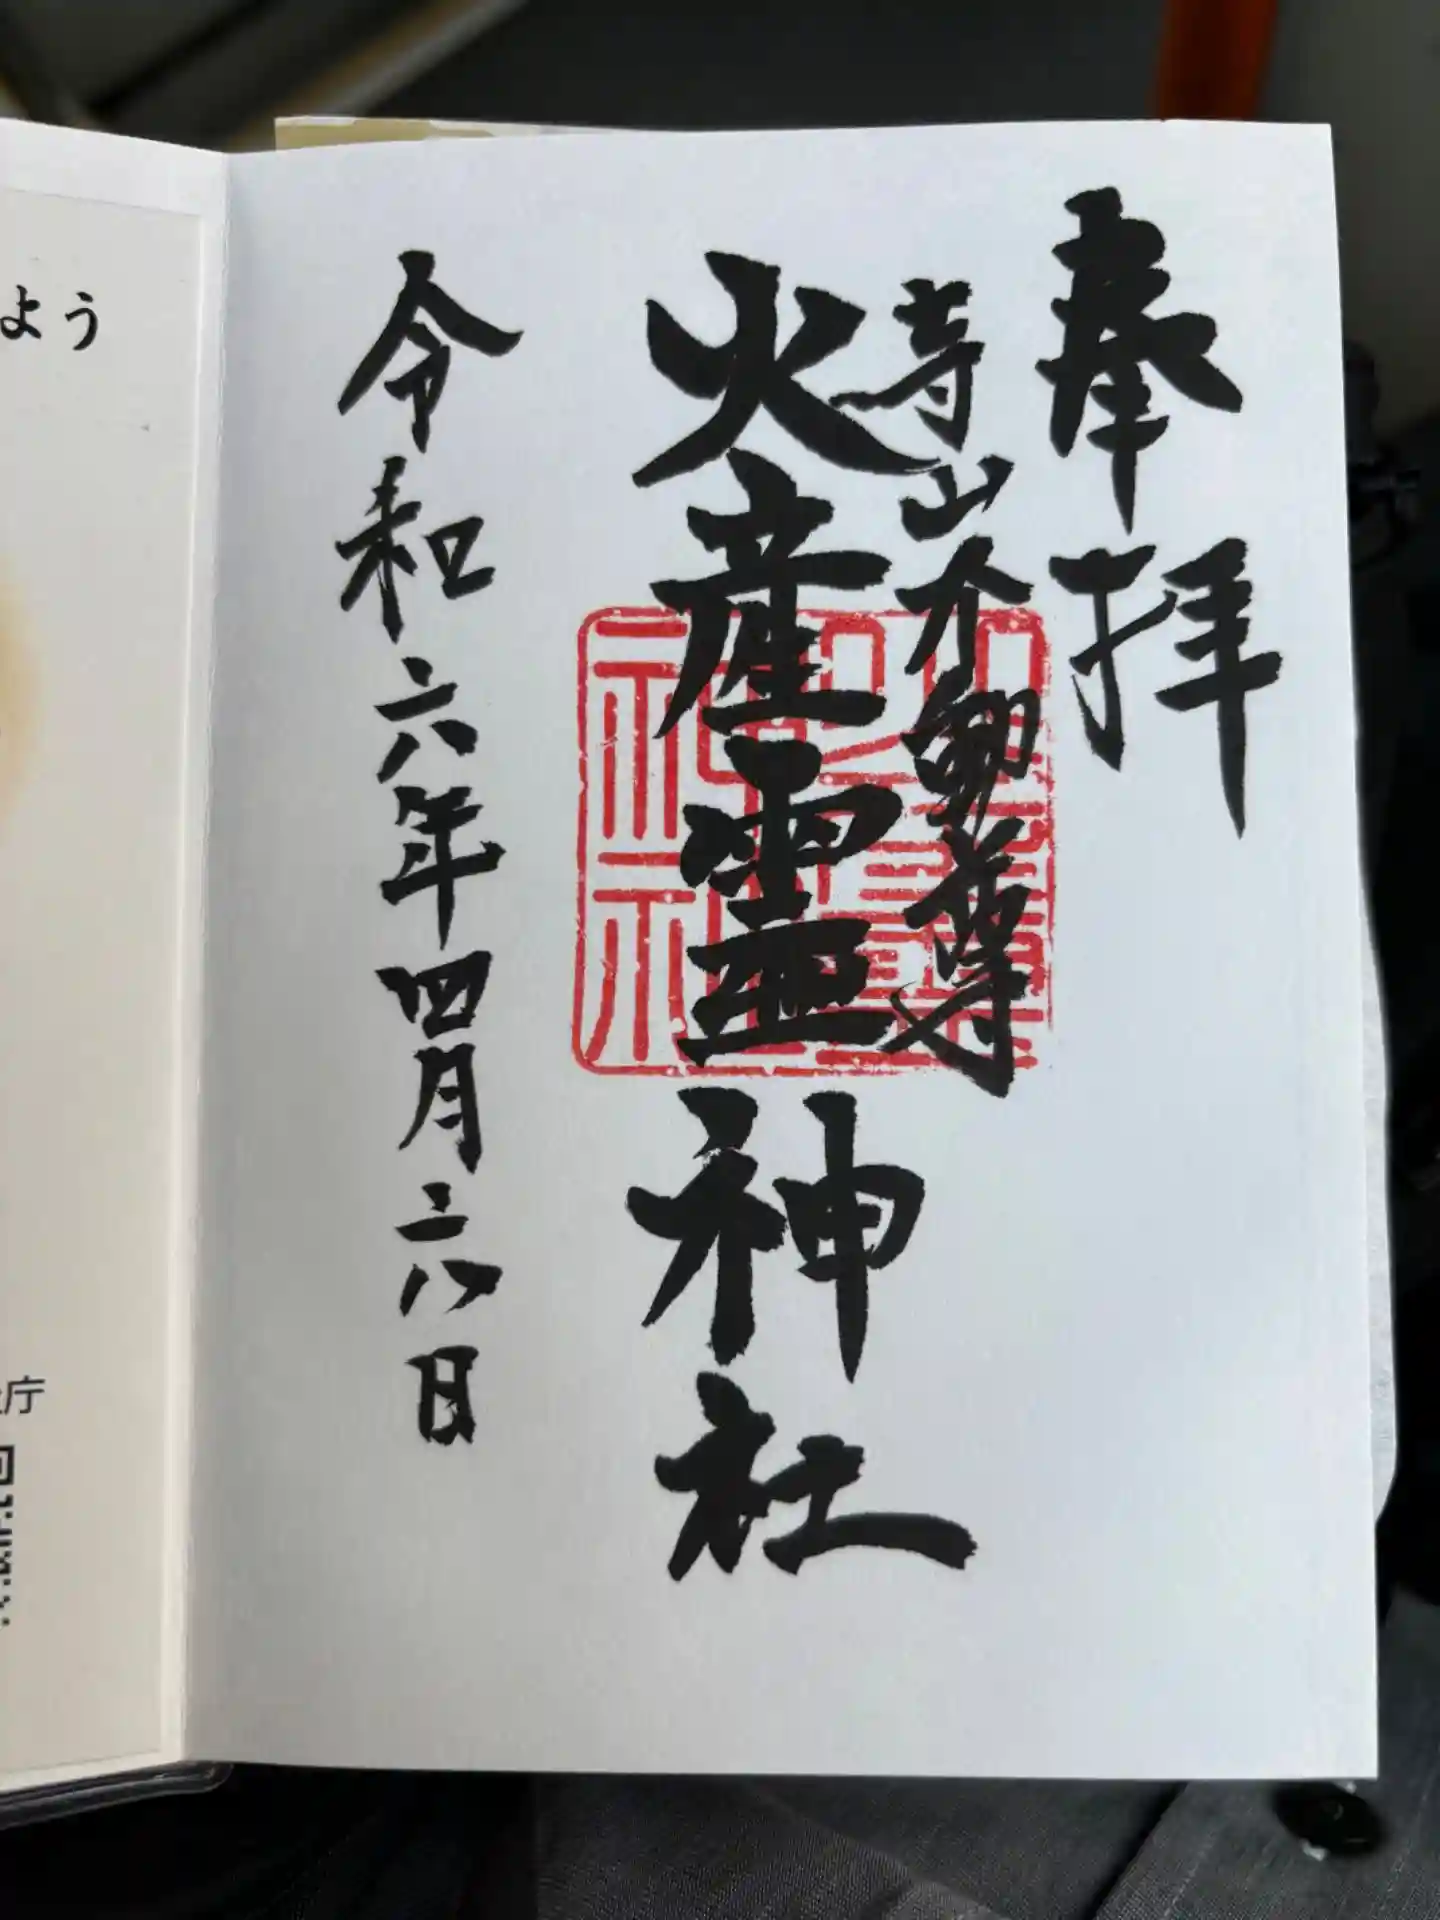 奉拝
寺山不動尊
火産霊神社
令和六年四月二八日
よう
庁